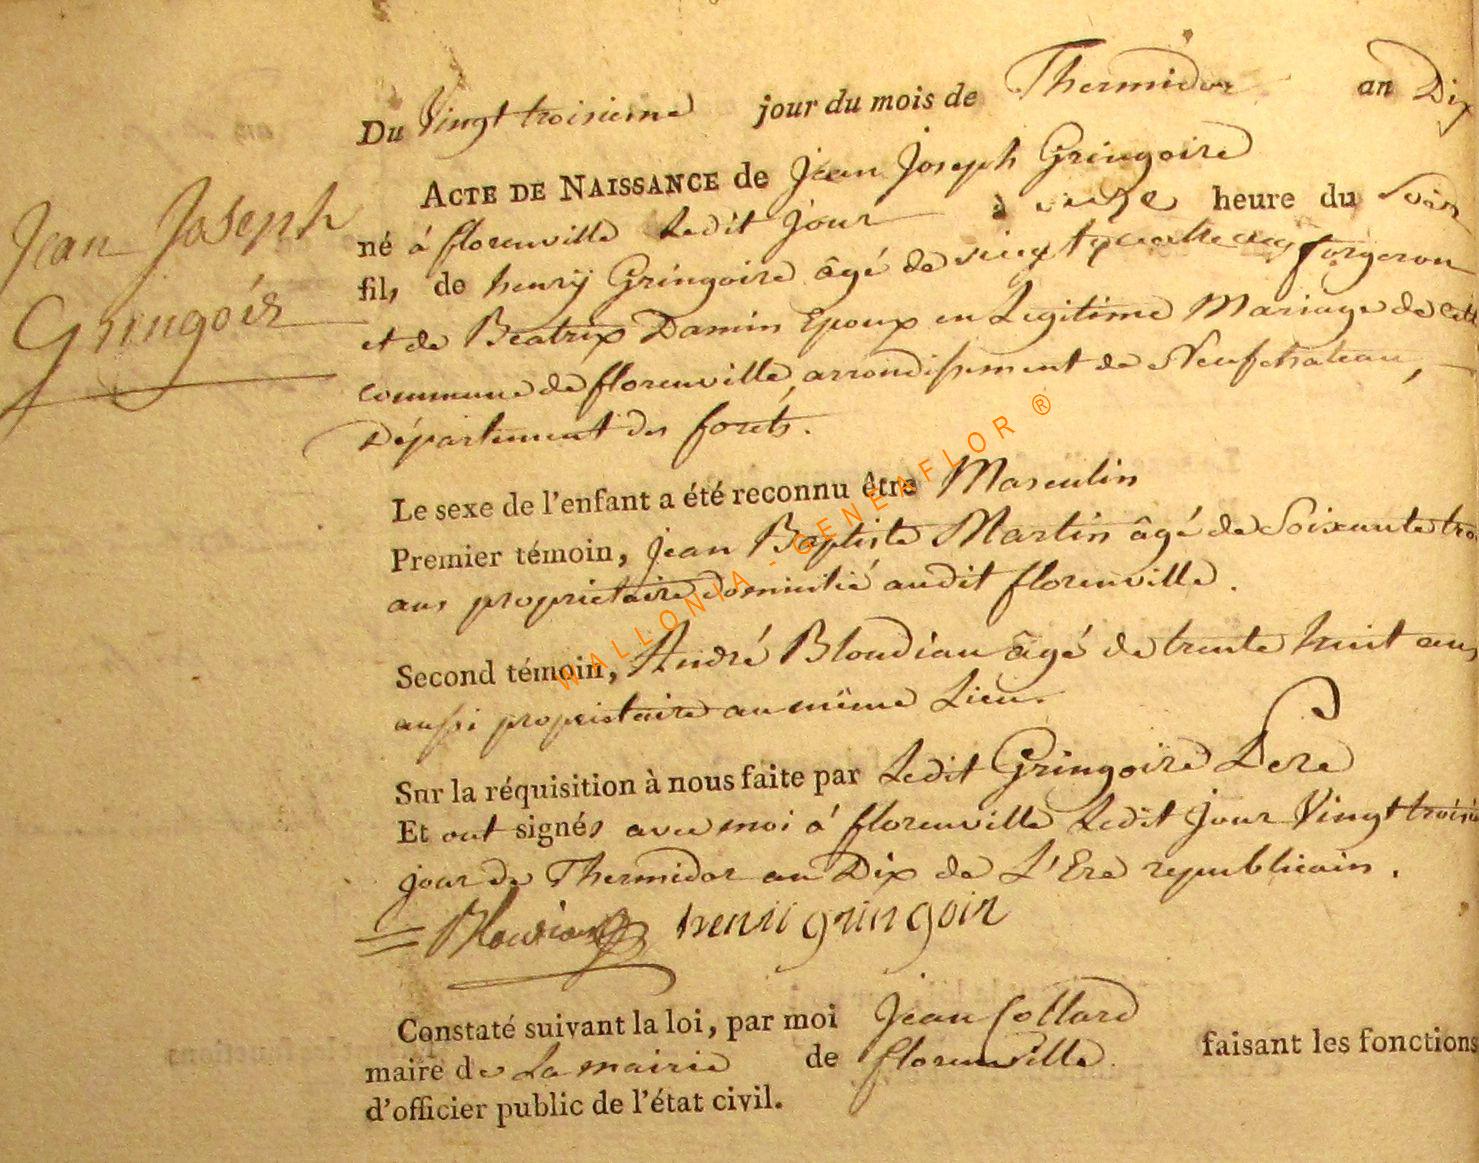 Du Vingt troisieme jour du mois de Thermidor an Dix
ACTE DE NAISSANCE de Jean Joseph Gringoire
né á florenville Ledit Jour à onze heure du Soir
fils de henrÿ Gringoire âgé de vingt quatre ans forgeron
et de Beatrix Damin Epoux en Legitime Mariage de cette
commune de florenville, arrondissement de Neufchateau,
Département des forêts.
Jean Joseph
Gringoir
Le sexe de l'enfant a été reconnu être Masculin
Premier témoin, Jean Baptiste Martin âgé de Soixante trois
ans propriétaire domicilié audit florenville.
Second témoin, André Bloudiau âgé de trente huit ans
aussi propriétaire au même Lieu.
Sur la réquisition à nous faite par Ledit Gringoire Pere
Et ont signés avec moi á florenville Ledit Jour Vingt troisie
jour de Thermidor an Dix de L'Ere republicain.
henri gringoir
Constaté suivant la loi, par moi Jean Collard
maire de La mairie de florenville faisant les fonctions
d'officier public de l'état civil.
WALLONIA - GENEAFLOR ®